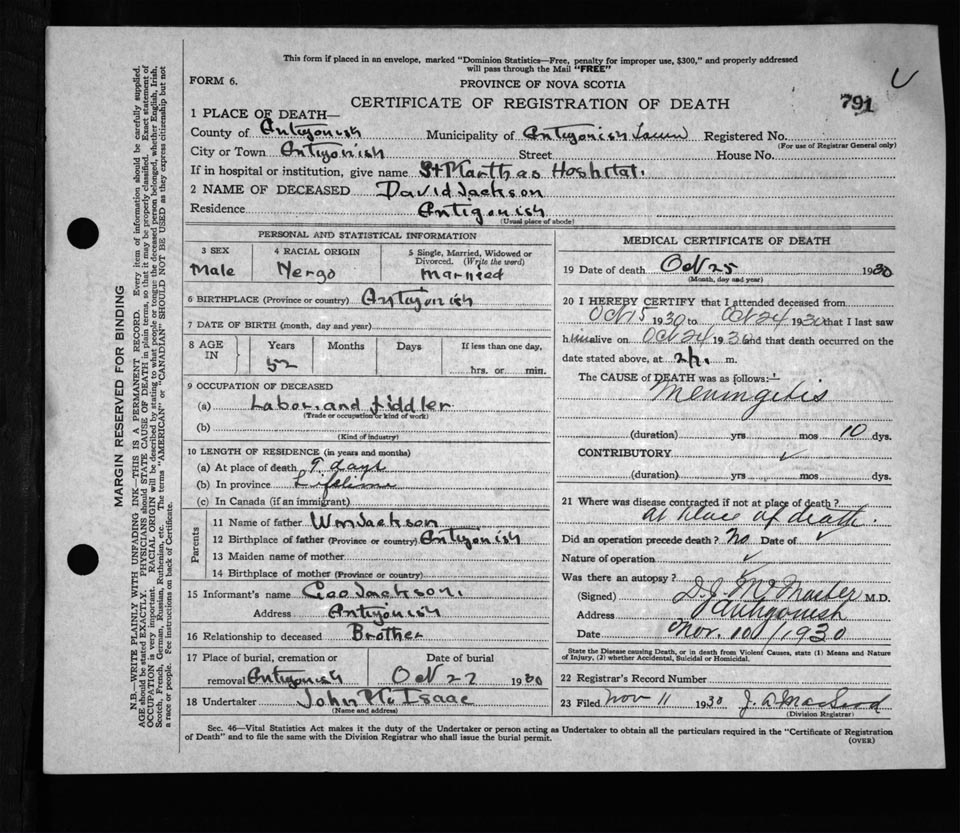 This form if placed in an envelope, marked "Dominion Statistics—Free, penalty for improper use, $300," and properly addressed
will pass through the Mail "FREE"
FORM 6.
PROVINCE OF NOVA SCOTIA
791
CERTIFICATE OF REGISTRATION OF DEATH
1 PLACE OF DEATH—
County of Antigonish Municipality of Antigonish Town Registered No.
(For use of Registrar General only)
City or Town Antigonish Street House No.
If in hospital or institution, give name St Marthas Hoshital.
2 NAME OF DECEASED David Jackson
Residence Antigonish
(Usual place of abode)
PERSONAL AND STATISTICAL INFORMATION
3 SEX 4 RACIAL ORIGIN 5 Single, Married, Widowed or
Divorced. (Write the word)
Male Nergo Married
6 BIRTHPLACE (Province or country) Antigonish
7 DATE OF BIRTH (month, day and year)
8 AGE IN Years Months Days If less than one day,
52 hrs. or min.
9 OCCUPATION OF DECEASED
(a) Labor and fiddler
(Trade or occupation or kind of work)
(b)
(Kind of industry)
10 LENGTH OF RESIDENCE (in years and months)
(a) At place of death 9 days
(b) In province Lifetime
(c) In Canada (if an immigrant)
Parents
11 Name of father Wm Jackson
12 Birthplace of father (Province or country) Antigonish
13 Maiden name of mother
14 Birthplace of mother (Province or country)
15 Informant's name Geo Jackson.
Address Antigonish
16 Relationship to deceased Brother
17 Place of burial, cremation or Date of burial
removal Antigonish Oct 27 1930
18 Undertaker John McIsaac
(Name and address)
MEDICAL CERTIFICATE OF DEATH
19 Date of death Oct 25 1930
(Month, day and year)
20 I HEREBY CERTIFY that I attended deceased from
Oct 15 1930 to Oct 24 1930 that I last saw
him alive on Oct 24 1930 and that death occurred on the
date stated above, at m.
The CAUSE of DEATH was as follows:
Meningitis
(duration) yrs mos 10 dys.
CONTRIBUTORY
(duration) yrs. mos. dys.
21 Where was disease contracted if not at place of death?
at place of death.
Did an operation precede death? no Date of
Nature of operation
Was there an autopsy?
(Signed) D. J. McMaster M.D.
Address Antigonish
Date Nov. 10 / 1930
State the Disease causing Death, or in death from Violent Causes, state (1) Means and Nature
of Injury, (2) whether Accidental, Suicidal or Homicidal.
22 Registrar's Record Number
23 Filed Nov 11 1930 J. A. MacLeod
(Division Registrar)
Sec. 46—Vital Statistics Act makes it the duty of the Undertaker or person acting as Undertaker to obtain all the particulars required in the "Certificate of Registration
of Death" and to file the same with the Division Registrar who shall issue the burial permit.
(OVER)
MARGIN RESERVED FOR BINDING
N.B.—WRITE PLAINLY WITH UNFADING INK—THIS IS A PERMANENT RECORD. Every item of information should be carefully supplied.
AGE should be stated EXACTLY. PHYSICIANS should STATE CAUSE OF DEATH in plain terms, so that it may be properly classified. Exact statement of
OCCUPATION is very important. RACIAL ORIGIN will be described by stating to what people or tongue the deceased person belonged, whether English, Irish,
Scotch, French, German, Russian, Ruthenian, etc. The terms "AMERICAN" or "CANADIAN" SHOULD NOT BE USED as they express citizenship but not
a race or people. See instructions on back of Certificate.